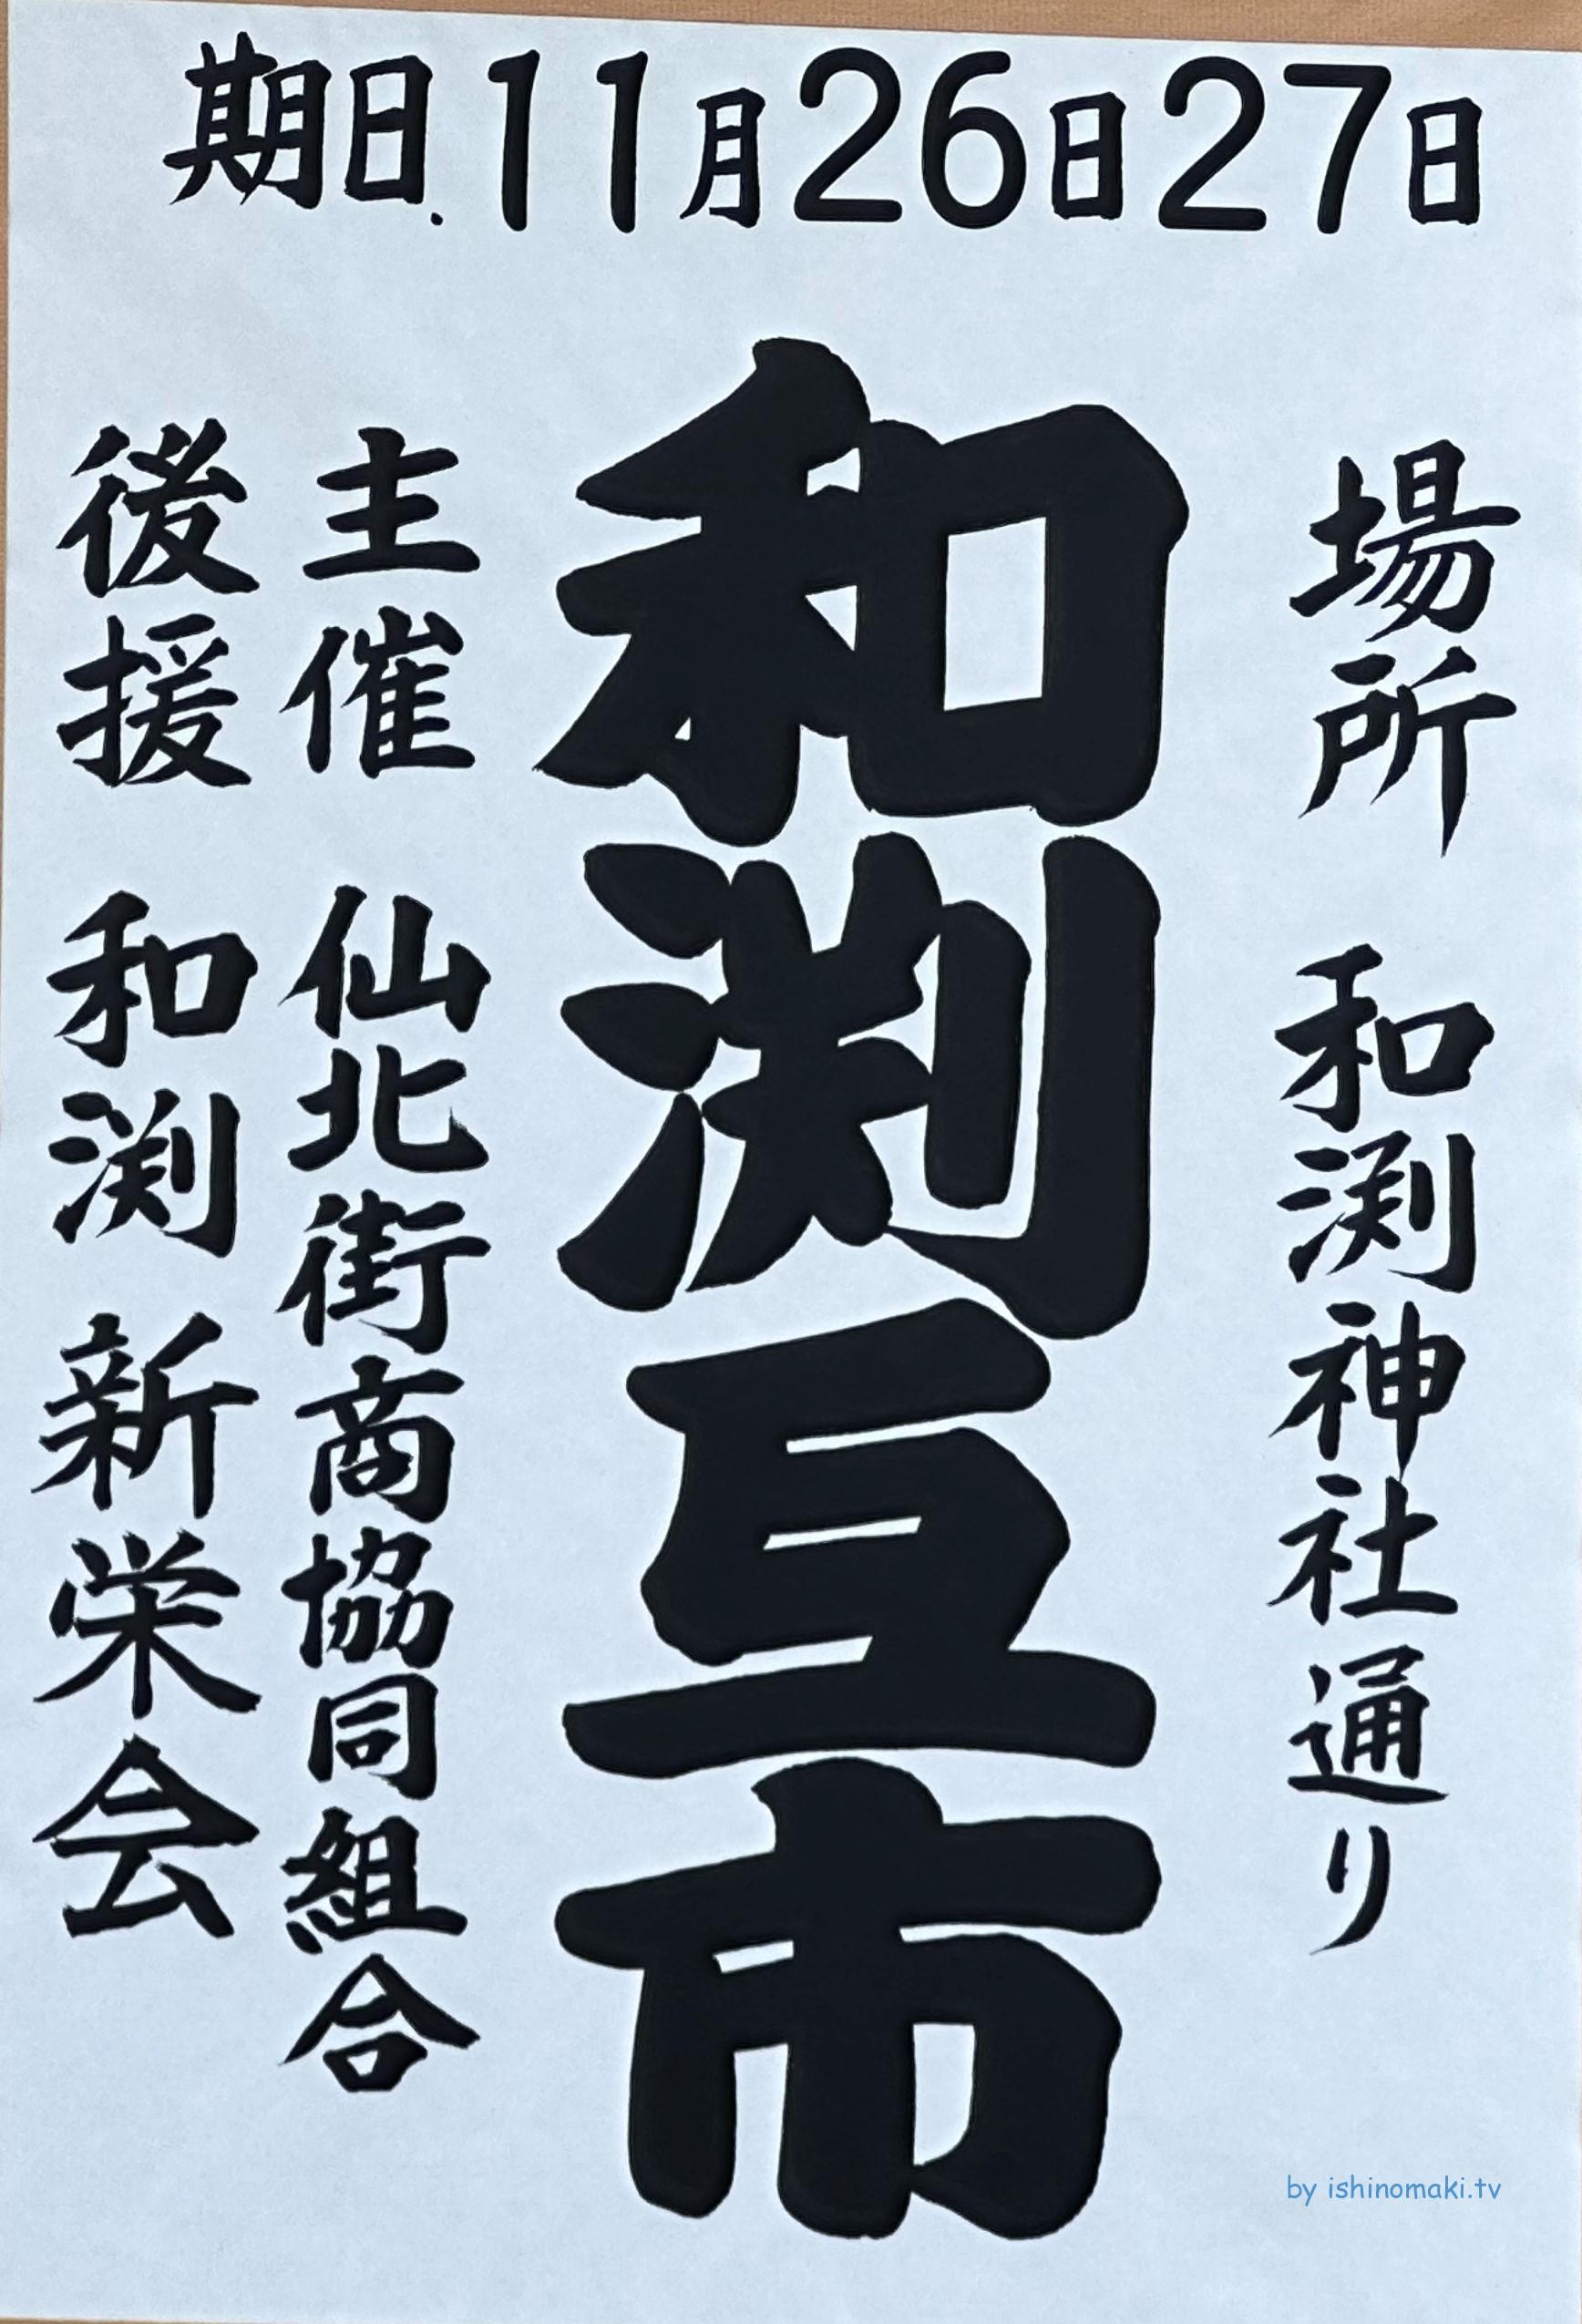 期日.11月26日27日
場所 和渕神社通り
和渕互市
主催 仙北街商協同組合
後援 和渕新栄会
by ishinomaki.tv